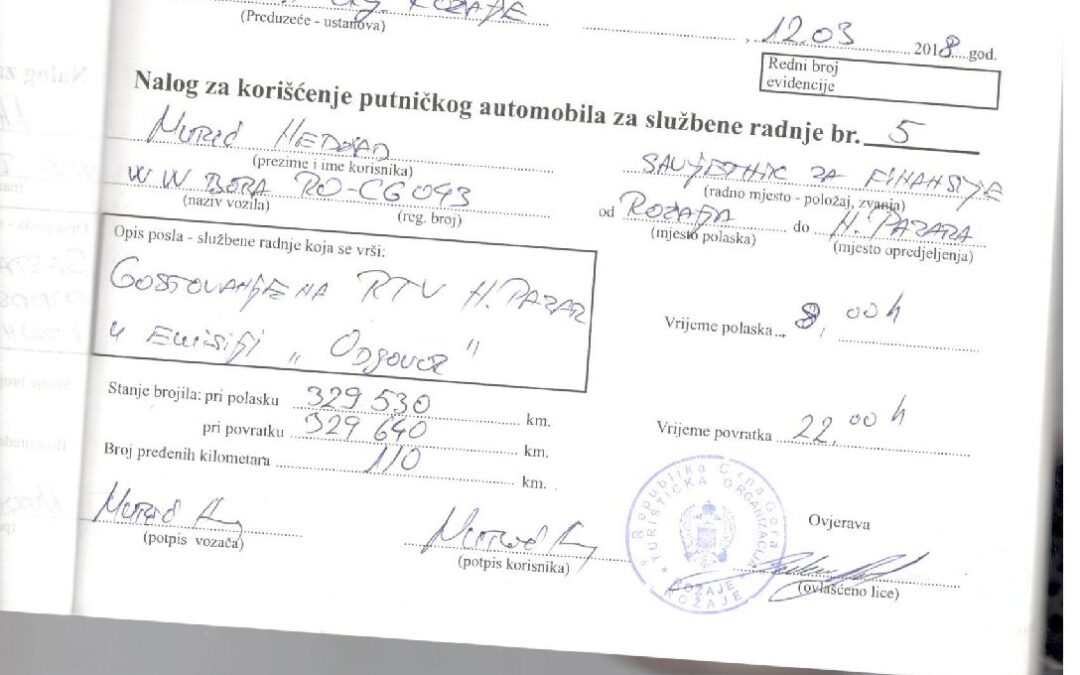 ROŽAJE
(Preduzeće - ustanova)
12.03 2018 god.
Redni broj
evidencije
Nalog za korišćenje putničkog automobila za službene radnje br. 5
(prezime i ime korisnika)
SAVJETNIK ZA FINANSIJE
(radno mjesto - položaj, zvanja)
W W BORA RO-CG 043
(naziv vozila) (reg. broj)
od ROŽAJA do N. PAZARA
(mjesto polaska) (mjesto opredjeljenja)
Opis posla - službene radnje koja se vrši:
GOSTOVANJE NA RTV N. PAZAR
u Emisiji „ Odgovor "
Vrijeme polaska 8, 00 h
Stanje brojila: pri polasku 329 530 km.
pri povratku 329 640 km.
Vrijeme povratka 22, 00 h
Broj pređenih kilometara 110 km.
(potpis vozača)
(potpis korisnika)
Republika Crna Gora
TURISTIČKA ORGANIZACIJA
"ROŽAJE"
ROŽAJE
Ovjerava
(ovlašćeno lice)